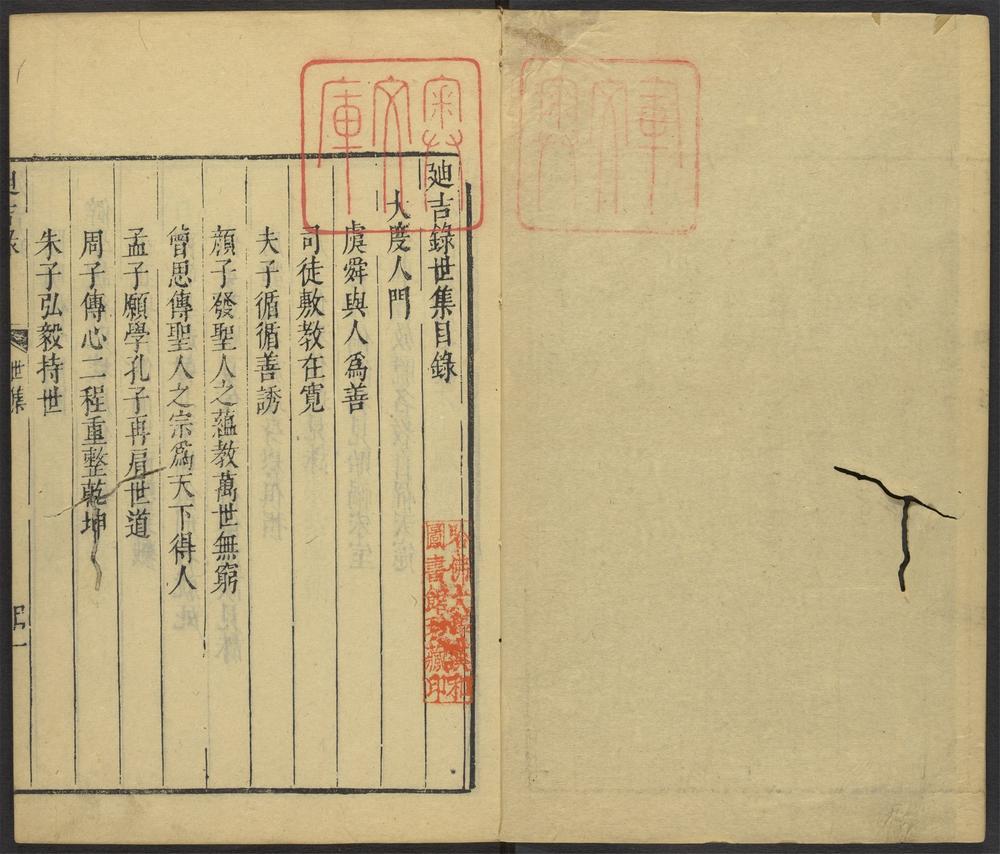 廸吉錄世集目錄
大度人門
虞舜與人爲善
司徒敷教在寛
夫子循循善誘
顏子發聖人之蘊教萬世無窮
曾思傳聖人之宗爲天下得人
孟子願學孔子再肩世道
周子傳心二程重整乾坤
朱子弘毅持世
世集
文庫
哈佛大學漢和
圖書館珍藏印